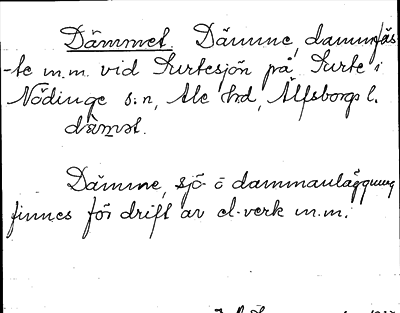 Dämmet. Dämme, dammfäs-
-te m.m. vid Surtesjön på Surte i
Nödinge s:n, Ale hd, Älfsborgs l.
dämət.
Dämme, sjö- o dammanläggning
finnes för drift av el-verk m.m.